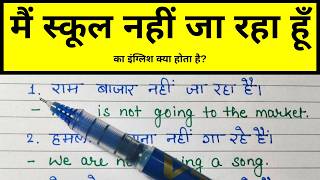 मैं स्कूल नहीं जा रहा हूँ
का इंग्लिश क्या होता है?
1. राम बाजार नहीं जा रहा है।
- is not going to the market.
2. हमलोग गाना नहीं गा रहे हैं।
- We are not a song.